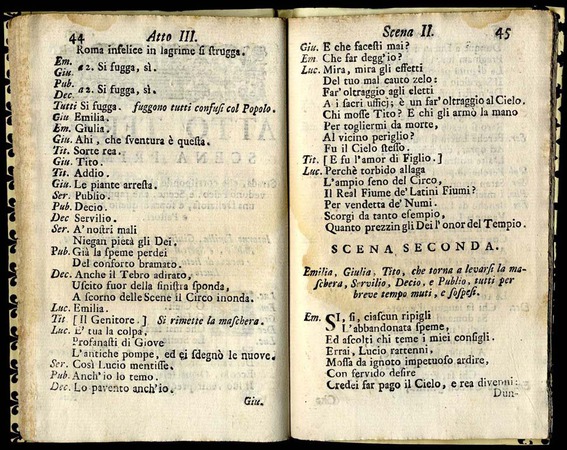 44 Atto III.
Roma infelice in lagrime si strugga.
Em.
Giu. a 2. Si fugga, sì.
Pub.
Dec. a 2. Si fugga, sì.
Tutti Si fugga. fuggono tutti confusi col Popolo.
Giu. Emilia.
Em. Giulia.
Giu. Ahi, che sventura è questa.
Tit. Sorte rea.
Giu. Tito.
Tit. Addio.
Giu. Le piante arresta.
Ser. Publio.
Pub. Decio.
Dec Servilio.
Ser. A' nostri mali
Niegan pietà gli Dei.
Pub. Già la speme perdei
Del conforto bramato.
Dec. Anche il Tebro adirato,
Uscito fuor della sinistra sponda,
A scorno delle Scene il Circo inonda.
Luc. Emilia.
Tit. [Il Genitore.] Si rimette la maschera.
Luc. E' tua la colpa.
Profanasti di Giove
L'antiche pompe, ed ei sdegnò le nuove.
Ser. Così Lucio mentisse.
Pub. Anch'io lo temo.
Dec. Lo pavento anch'io.
Giu.
Scena II. 45
Giu. E che facesti mai?
Em. Che far degg'io?
Luc. Mira, mira gli effetti
Del tuo mal cauto zelo:
Far'oltraggio agli eletti
A i sacri uffici; è un far'oltraggio al Cielo.
Chi mosse Tito? E chi gli armò la mano
Per togliermi da morte,
Al vicino periglio?
Fu il Cielo stesso.
Tit. [E fu l'amor di Figlio.]
Luc. Perchè torbido allaga
L'ampio seno del Circo,
Il Real Fiume de' Latini Fiumi?
Per vendetta de' Numi.
Scorgi da tanto esempio,
Quanto prezzin gli Dei l'onor del Tempio.
SCENA SECONDA.
Emilia, Giulia, Tito, che torna a levarsi la ma-
schera, Servilio, Decio, e Publio, tutti per
breve tempo muti, e sospesi.
Em. SI, sì, ciascun ripigli
L'abbandonata speme,
Ed ascolti chi teme i miei consigli.
Errai, Lucio rattenni,
Mossa da ignoto impetuoso ardire,
Con fervido desire
Credei far pago il Cielo, e rea divenni:
Dun-